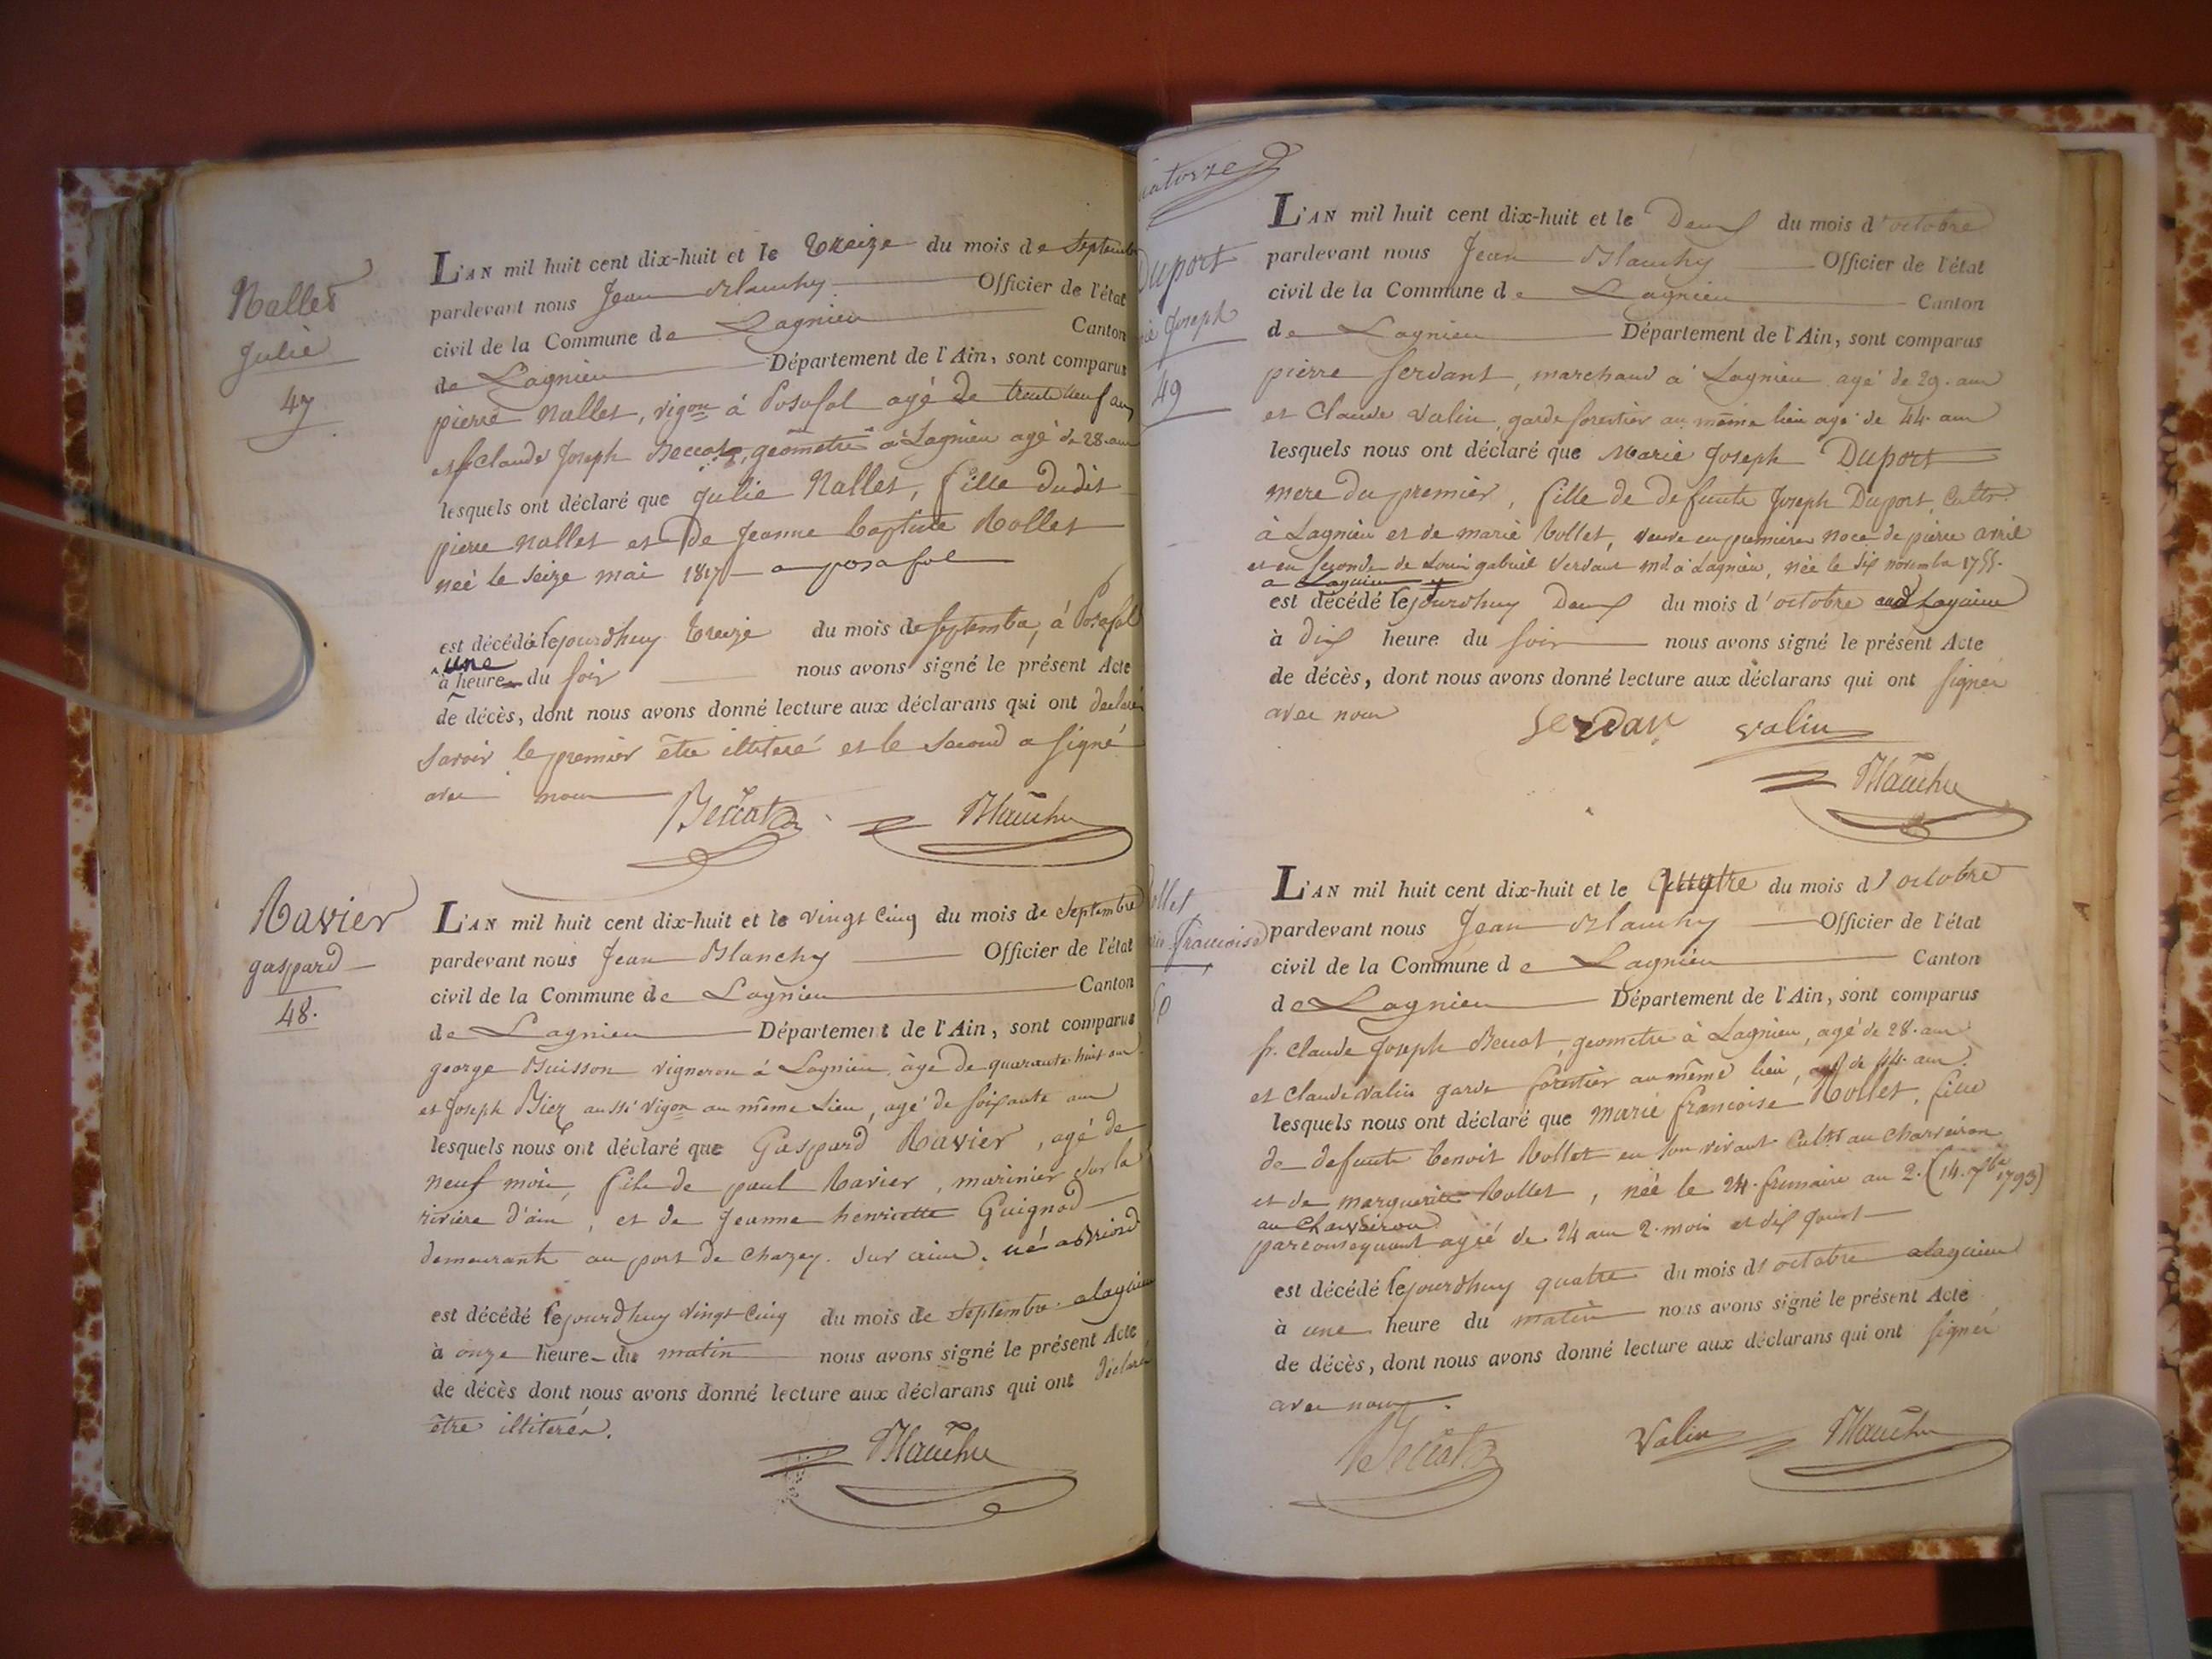 Nallet
Julie
47
L'AN mil huit cent dix-huit et le treize du mois de Septembre
pardevant nous Jean Blanchy Officier de l'état
civil de la Commune de Lagnieu Canton
de Lagnieu Département de l'Ain, sont comparus
pierre Nallet, vigon à Posafol agé de trente neuf ans
et fr Claude Joseph Beccat, géometre à Lagnieu agé de 28. ans
lesquels ont déclaré que Julie Nallet, fille dudit
pierre nallet et de Jeanne baptiste Rollet
neé le seize mai 1817 a posafol
est décédé cejourdhuy treize du mois de septembre, à Posafol
à une heure du soir nous avons signé le présent Acte
de décès, dont nous avons donné lecture aux déclarans qui ont declaré
savoir le premier être illiteré et le second a signé
avec nous
Beccat Blanchy
Ravier
gaspard
48.
L'AN mil huit cent dix-huit et le vingt Cinq du mois de Septembre
pardevant nous Jean Blanchy Officier de l'état
civil de la Commune de Lagnieu Canton
de Lagnieu Département de l'Ain, sont comparus
george Buisson vigneron à Lagnieu, âgé de quarante huit ans
et Joseph Biez aussi vigon au même Lieu, agé de soixante ans
lesquels nous ont déclaré que Gaspard Ravier, agé de
neuf mois, fils de paul Ravier, marinier sur la
riviére d'ain, et de Jeanne henriette Guignod
demeurants au port de Chazey. sur ain. né a Briord
est décédé cejourdhuy vingt Cinq du mois de Septembre. a lagnieu
à onze heure du matin nous avons signé le présent Acte
de décès dont nous avons donné lecture aux déclarans qui ont déclaré
être illiterés.
Blanchy
Duport
Joseph
49
L'AN mil huit cent dix-huit et le Deux du mois d'octobre
pardevant nous Jean Blanchy Officier de l'état
civil de la Commune de Lagnieu Canton
de Lagnieu Département de l'Ain, sont comparus
pierre servant, marchand à Lagnieu agé de 29. ans
et Claude valin, garde forestier au même lieu agé de 44. ans
lesquels nous ont déclaré que Marie Joseph Duport
mere du premier, fille de defunte Joseph Duport, Cultr.
à Lagnieu et de marie Rollet, veuve en premiere noce de pierre avril
et en seconde de Louis gabriel Servant md. à Lagnieu, née le dix novembre 1755.
a Lagnieu
est décédé cejourdhuy Deux du mois d'octobre a Lagnieu
à dix heure du soir nous avons signé le présent Acte
de décès, dont nous avons donné lecture aux déclarans qui ont signer
avec nous
Servan valin
Blanchy
francoise
50
L'AN mil huit cent dix-huit et le quatre du mois d'octobre
pardevant nous Jean Blanchy Officier de l'état
civil de la Commune de Lagnieu Canton
de Lagnieu Département de l'Ain, sont comparus
fr. Claude Joseph Beccat, geometre à Lagnieu, agé de 28. ans
et Claude Valin garde forestier au même lieu, agé de 44. ans.
lesquels nous ont déclaré que marie francoise Rollet, fille
de defunte benoit Rollet en son vivant Cultr au Charveiron
et de marguerite Rollet, née le 24. frimaire an 2. (14. 7bre 1793)
au Charveiron
par consequant agée de 24 ans 2. mois et dix Jours
est décédé cejourdhuy quatre du mois d'octobre a lagnieu
à une heure du matin nous avons signé le présent Acte
de décès, dont nous avons donné lecture aux déclarans qui ont signer
avec nous.
Beccat Valin Blanchy